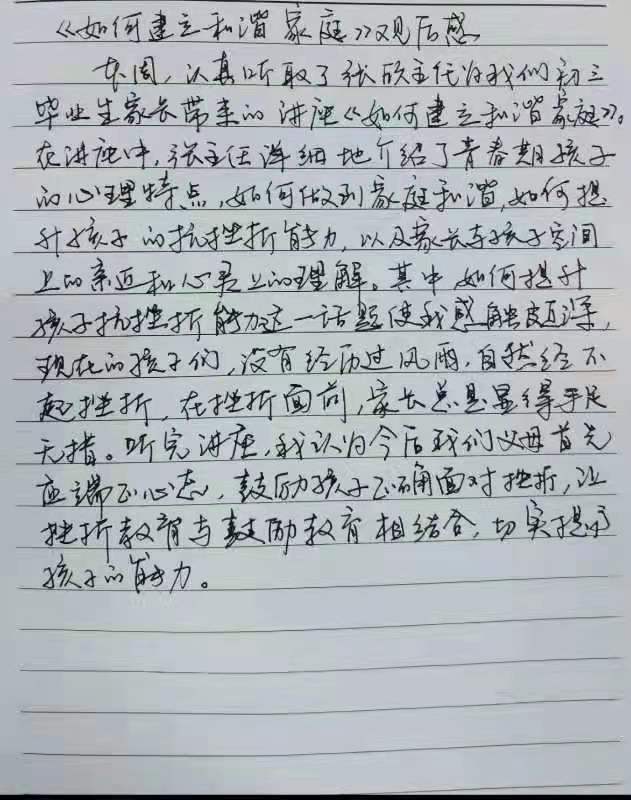 《如何建立和谐家庭》观后感
本周，认真听取了张欣主任为我们初三
毕业生家长带来的讲座《如何建立和谐家庭》。
在讲座中，张主任详细地介绍了青春期孩子
的心理特点，如何做到家庭和谐，如何提
升孩子的抗挫折能力，以及家长与孩子空间
上的亲近和心灵上的理解。其中如何提升
孩子抗挫折能力这一话题使我感触颇深，
现在的孩子们，没有经历过风雨，自然经不
起挫折，在挫折面前，家长总是显得手足
无措。听完讲座，我认为今后我们父母首先
应端正心态，鼓励孩子正确面对挫折，让
挫折教育与鼓励教育相结合，切实提高
孩子的能力。